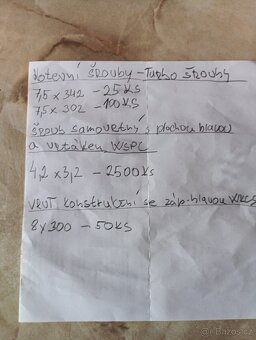 Kotevní šrouby - Turbo šrouby
7,5 x 342 - 25 KS
7,5 x 302 - 100 KS
Šroub samovrtný s plochou hlavou
a vrtákem WSPC
4,2 x 3,2 - 2500 Ks
vrut konstrukční se záp. hlavou WKCS
8 x 300 - 50 KS
© Bazoš.cz